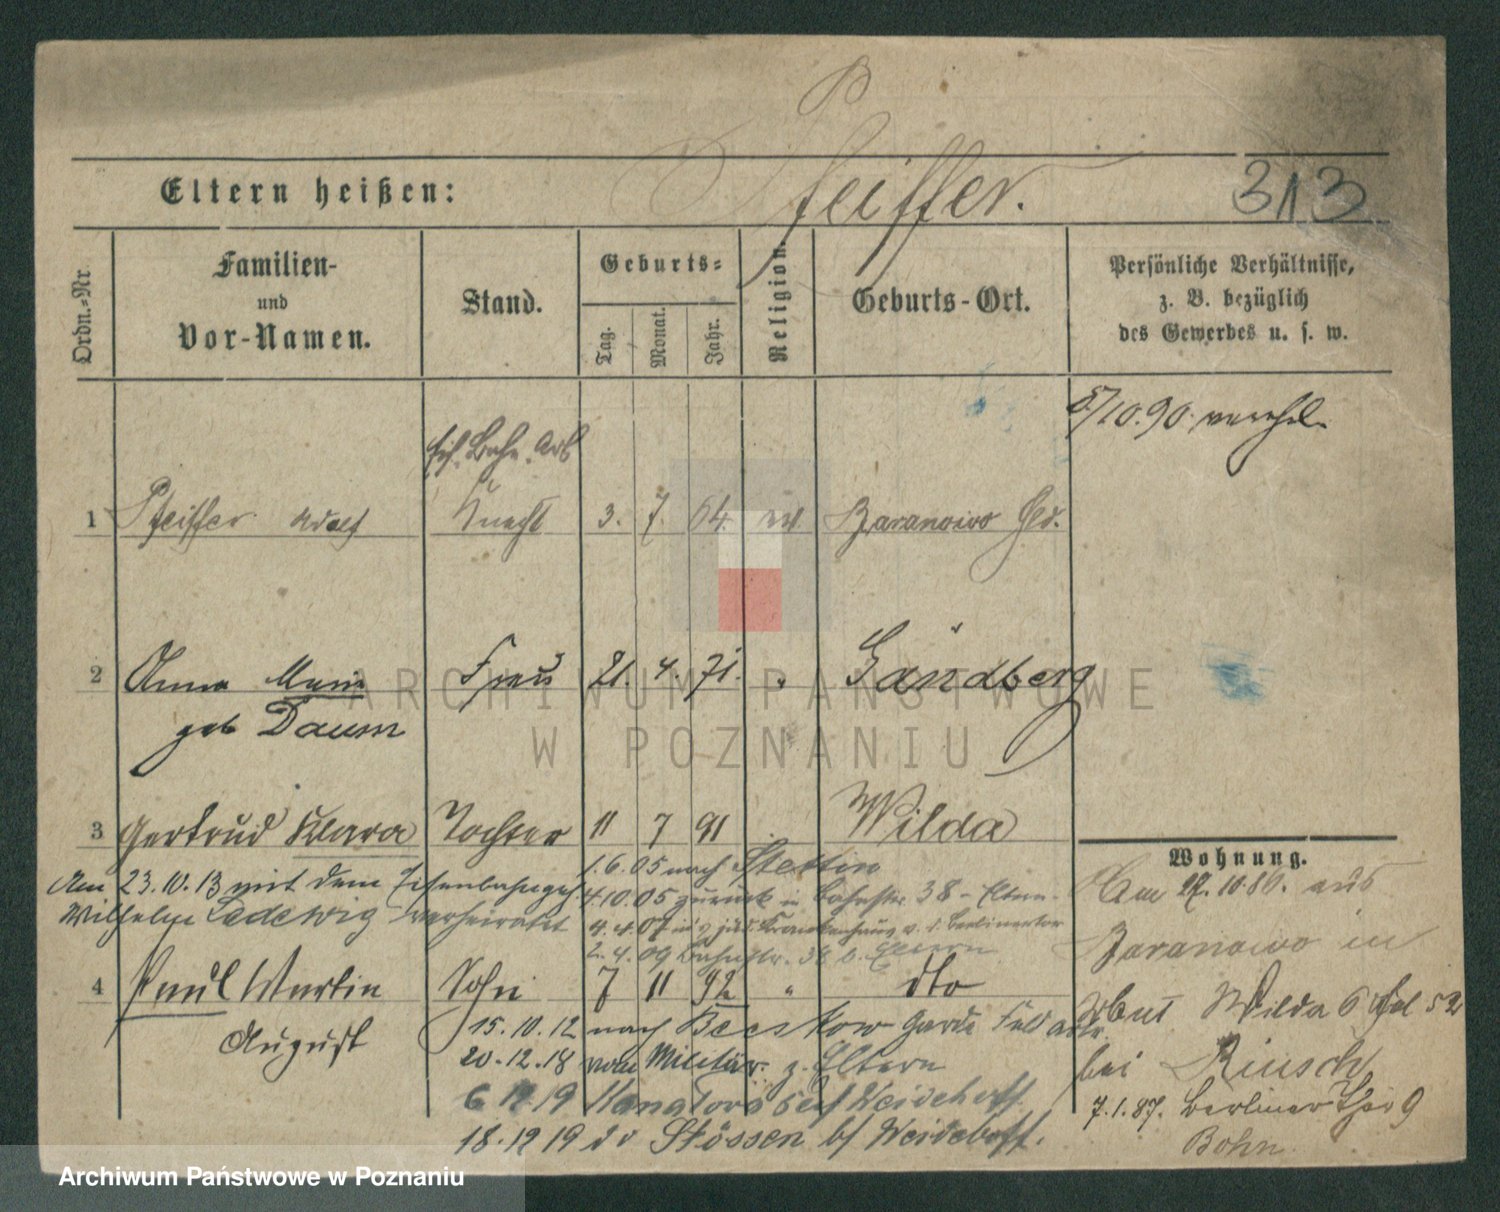 Pfeiffer.
313
Eltern heißen:
Ordn.-Nr.
Familien-
und
Vor-Namen.
Stand.
Geburts-
Tag.
Monat.
Jahr.
Religion
Geburts-Ort.
Persönliche Verhältnisse,
z. B. bezüglich
des Gewerbes u. s. w.
5/10.90. verehel.
1 Pfeiffer Adolf Knecht 3. 7. 64 ev. Baranowo
2 Anna Marie Frau 21. 4. 71. " Sandberg
geb Daum
3 Gertrud Klara Tochter 11 7 91 Wilda
1.6.05 nach Stettin
Am 23.10.13 mit dem
Wilhelm Ledewig verheiratet
4.10.05 zurück in Bahnstr. 38 - Eltern.
4.4.07 Krankenhaus v. d. Berlinertor
2.4.09 Bahnstr. 38 b. Eltern
4 Paul Martin Sohn 7 11 92 " dto
August
15.10.12 nach Beeskow Garde Feld
20.12.18 vom Militär z. Eltern
6 12 19
18.12 19 Stössen b/
Wohnung.
Am 27.10.86. aus
Baranowo in
Wilda 6 52
bei
7.1.87. Berliner Thor 9
Bohn
ARCHIWUM PAŃSTWOWE
W POZNANIU
Archiwum Państwowe w Poznaniu